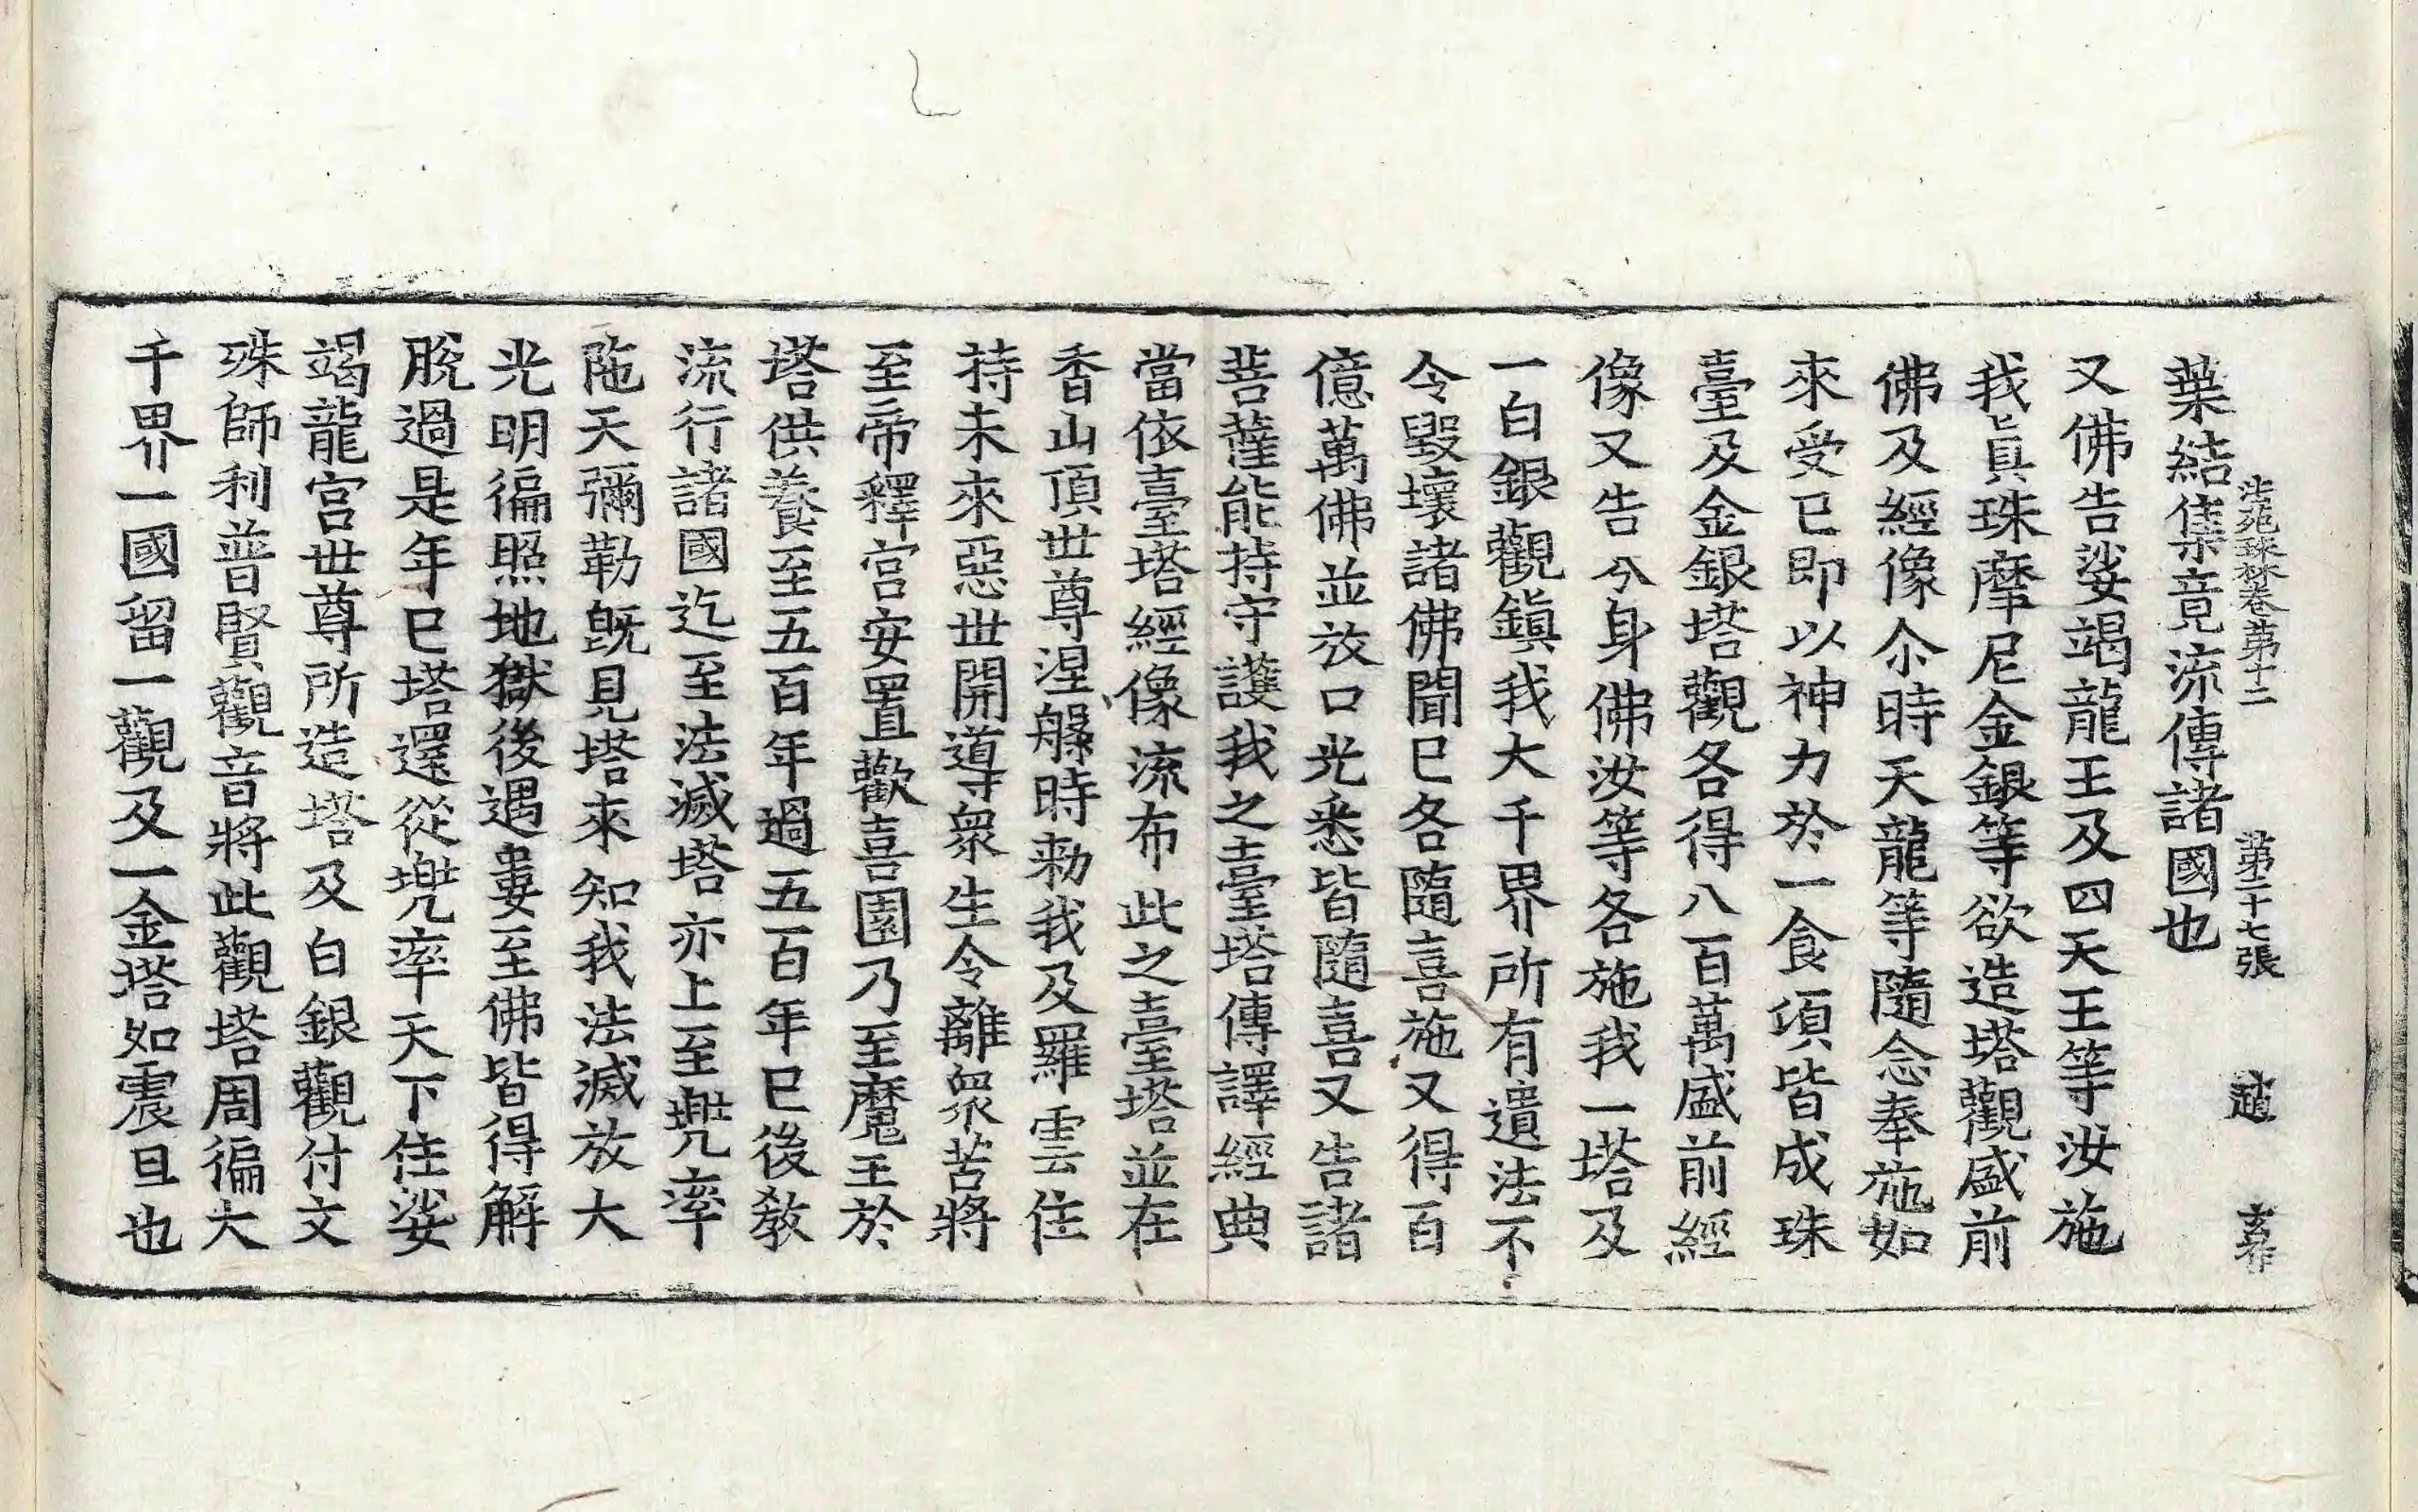 法苑珠林卷第十二 第二十七張 趙
葉結集竟流傳諸國也
又佛告娑竭龍王及四天王等汝施
我眞珠摩尼金銀等欲造塔觀盛前
佛及經像尒時天龍等隨念奉施如
來受已即以神力於一食頃皆成珠
臺及金銀塔觀各得八百萬盛前經
像又告分身佛汝等各施我一塔及
一白銀觀鎭我大千界所有遺法不
令毀壞諸佛聞已各隨喜施又得百
億萬佛並放口光悉皆隨喜又告諸
菩薩能持守護我之臺塔傳譯經典
當依臺塔經像流布此之臺塔並在
香山頂世尊涅槃時勑我及羅雲住
持未來惡世開導衆生令離衆苦將
至帝釋宮安置歡喜園乃至魔王於
塔供養至五百年過五百年已後教
流行諸國迄至法滅塔亦上至兠率
陁天彌勒旣見塔來知我法滅放大
光明徧照地獄後遇婁至佛皆得解
脫過是年已塔還從兠率天下住娑
竭龍宮世尊所造塔及白銀觀付文
殊師利普賢觀音將此觀塔周徧大
千界一國留一觀及一金塔如震旦也